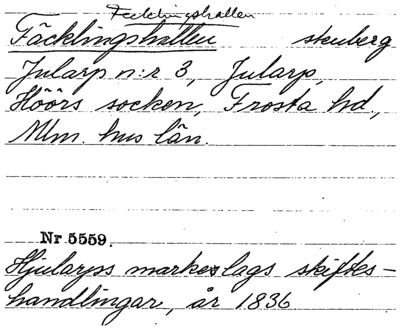 Fäcklingshallen
Fäcklingshallen skuberg
Jularp n:r 3, Jularp,
Höörs socken, Frosta hd,
Mlm. hus län.
Nr 5559.
Hjularps markeslags skiftes-
handlingar, år 1836